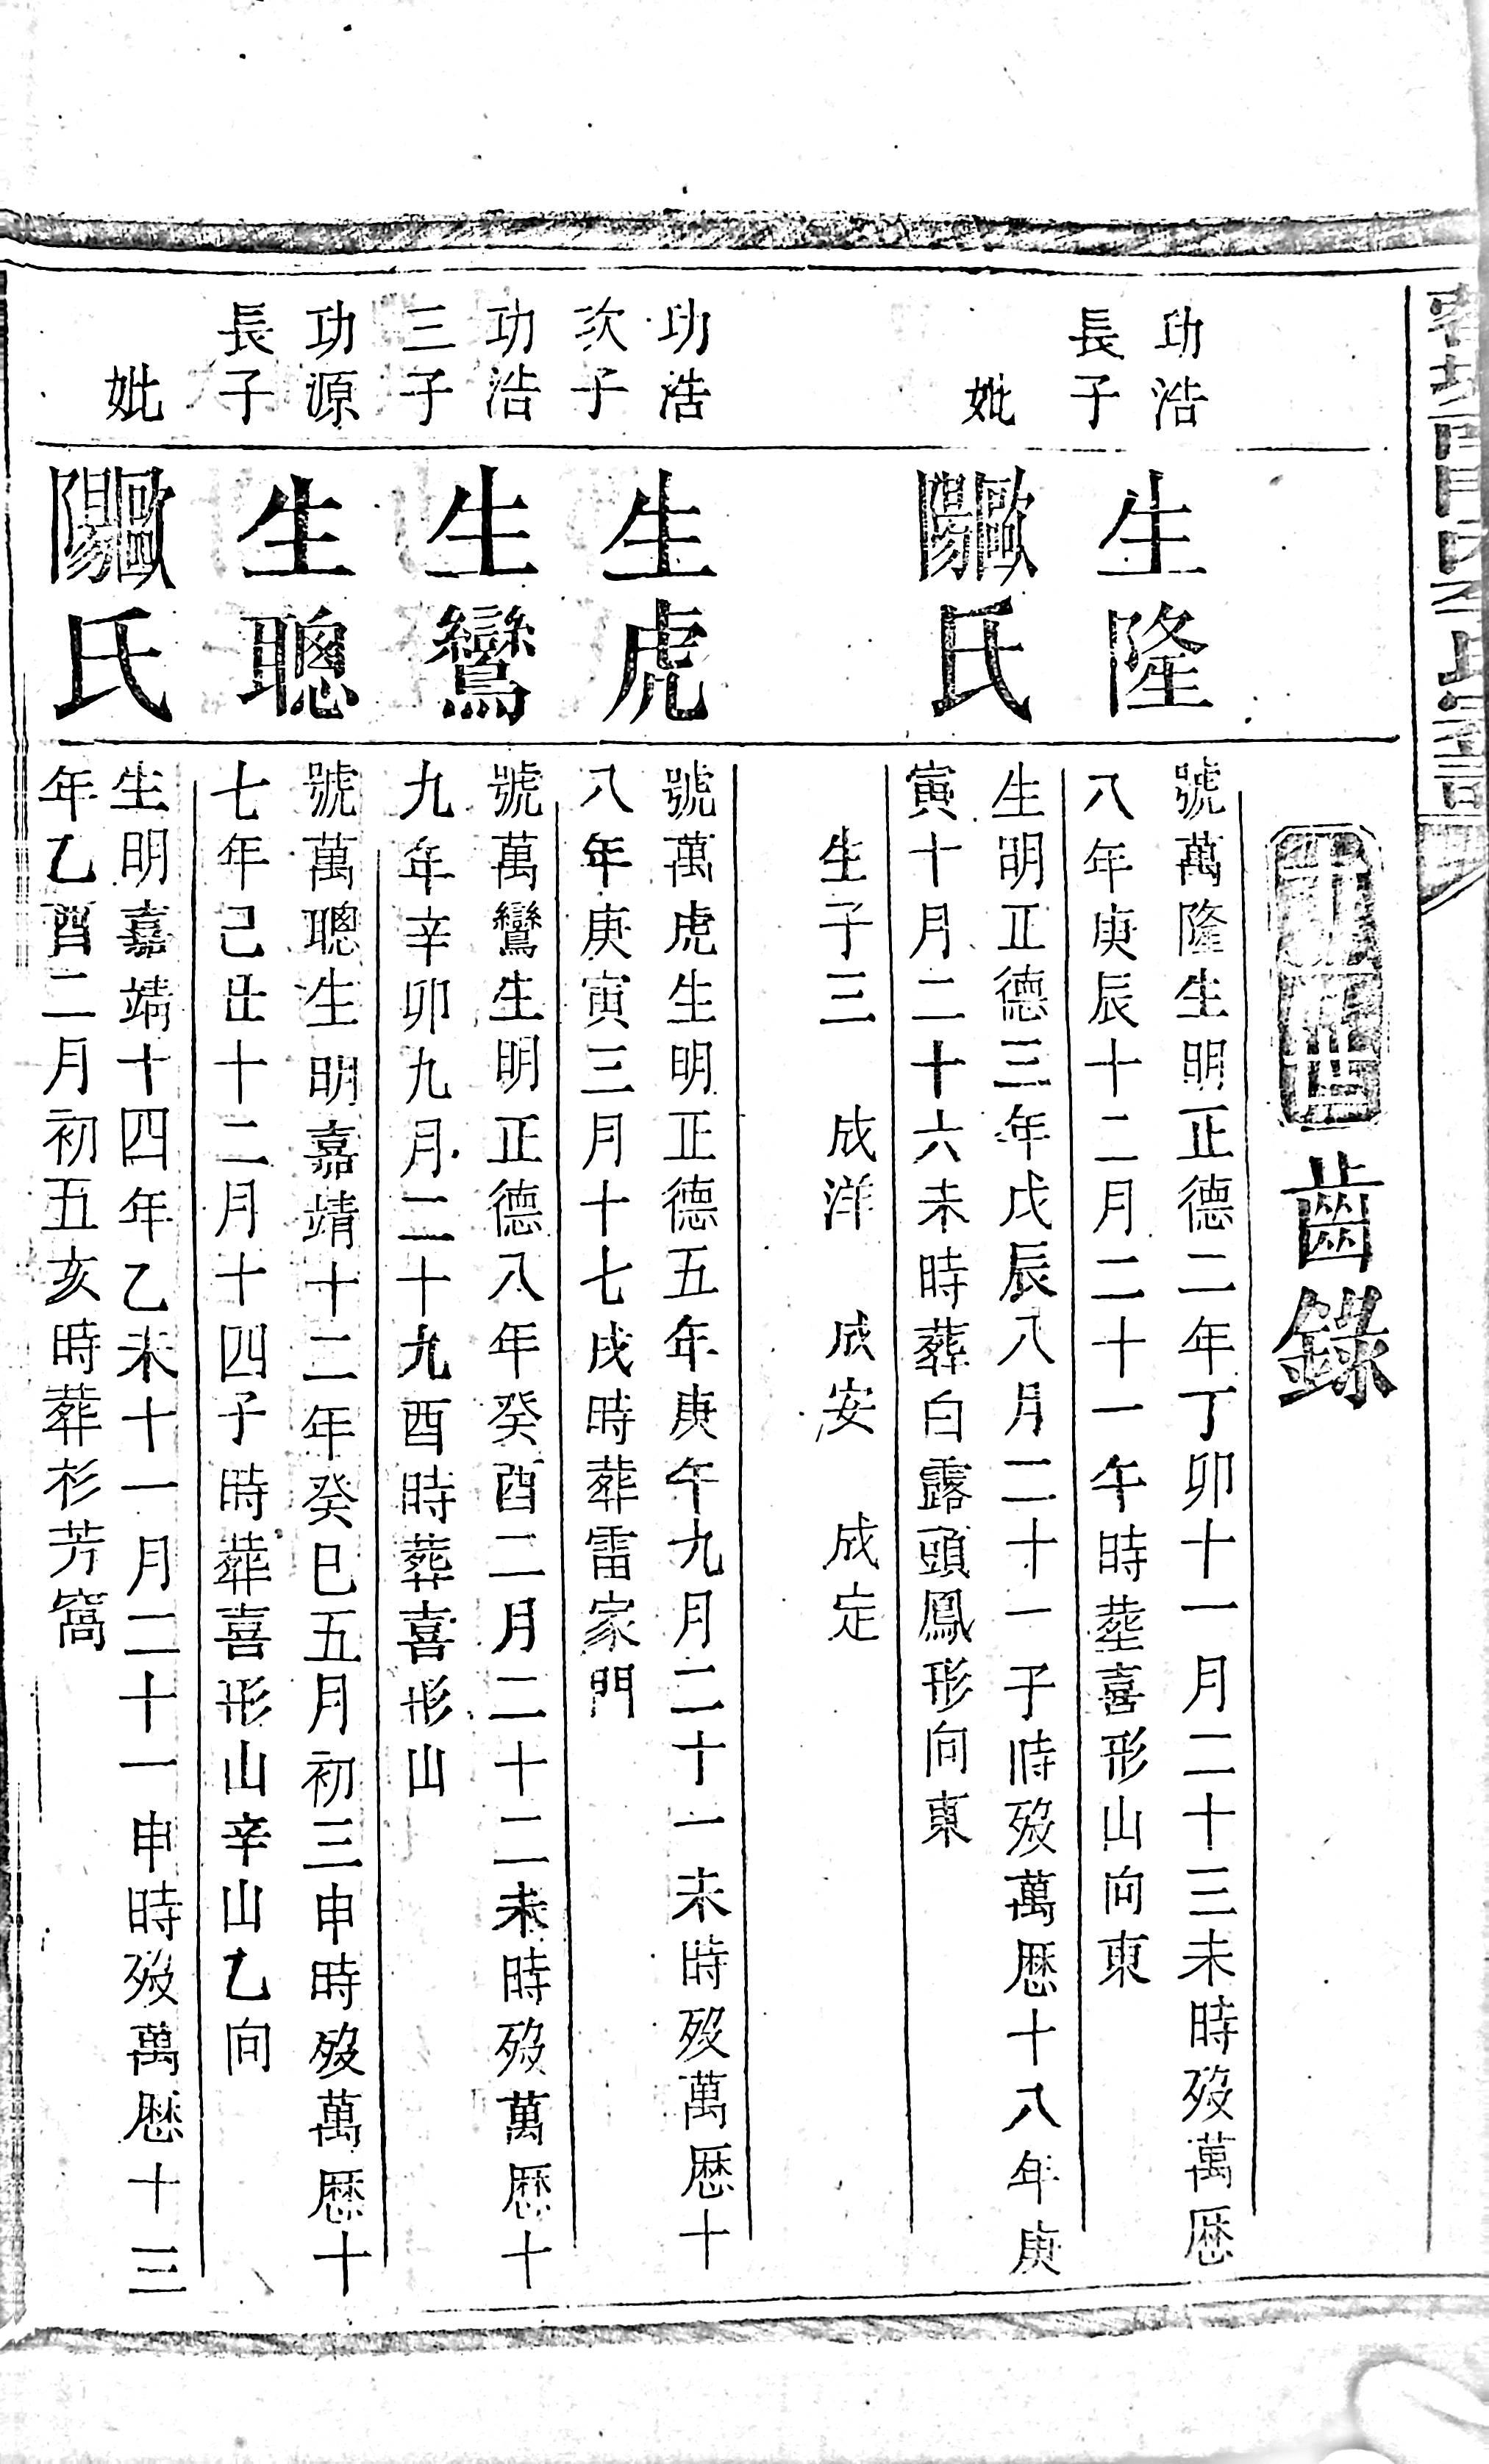 齒錄
功浩
長子
生隆
號萬隆生明正德二年丁卯十一月二十三未時歿萬歷
八年庚辰十二月二十一午時塟喜形山向東
妣
歐陽氏
生明正德三年戊辰八月二十一子時歿萬歷十八年庚
寅十月二十六未時葬白露頭鳳形向東
生子三 成洋 成安 成定
功浩
次子
生虎
號萬虎生明正德五年庚午九月二十一未時歿萬歷十
八年庚寅三月十七戌時葬雷家門
功浩
三子
生鸞
號萬鸞生明正德八年癸酉二月二十二未時歿萬歷十
九年辛卯九月二十九酉時葬喜形山
功源
長子
生聰
號萬聰生明嘉靖十二年癸巳五月初三申時歿萬歷十
七年己丑十二月十四子時葬喜形山辛山乙向
妣
歐陽氏
生明嘉靖十四年乙未十一月二十一申時歿萬歷十三
年乙酉二月初五亥時葬杉芳窩